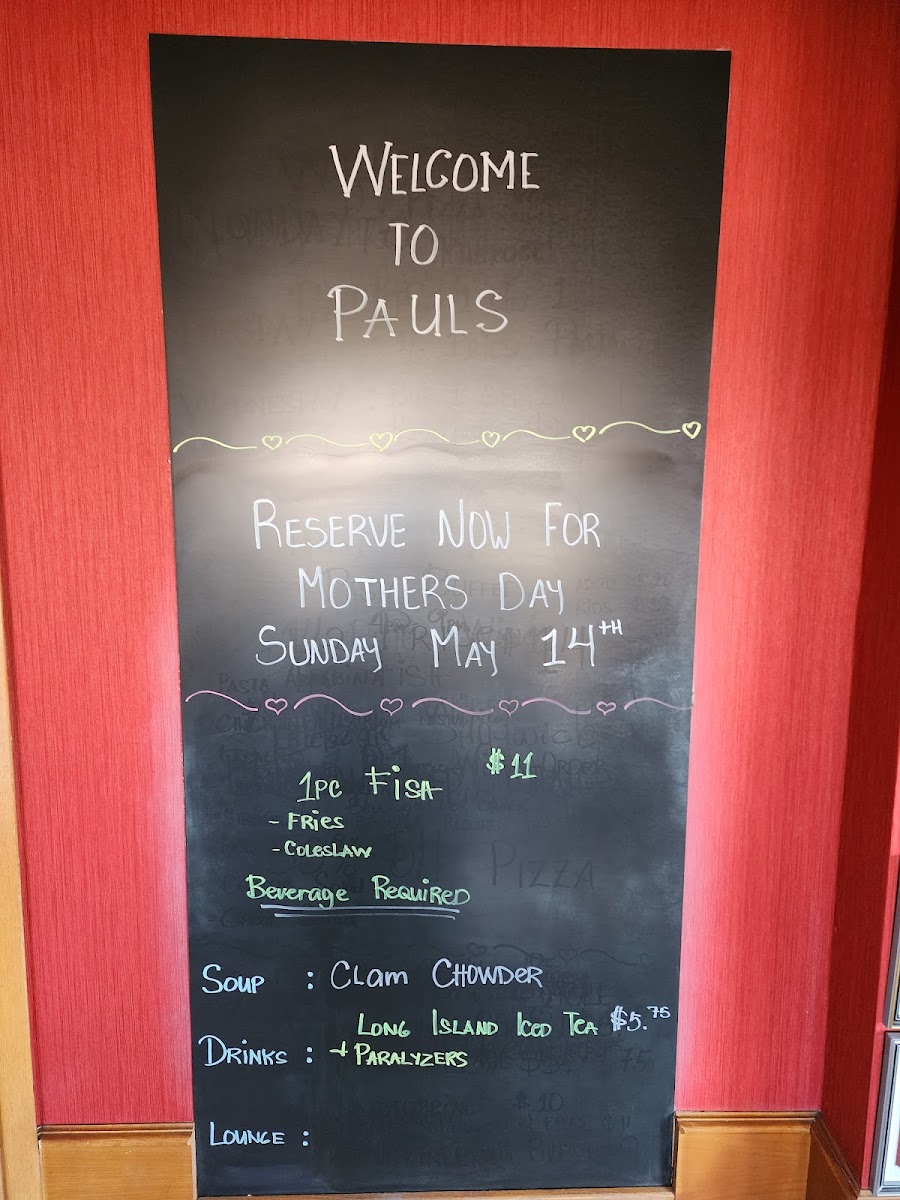 WELCOME
TO
PAULS
RESERVE NOW FOR
MOTHERS DAY
SUNDAY MAY 14TH
1PC FISH $11
- FRIES
- COLESLAW
Beverage REQUIRED
SOUP : CLam CHOWDER
LONG ISLAND ICED TEA $5.75
DRINKS : + PARALYZERS
LOUNGE :
PIZZA